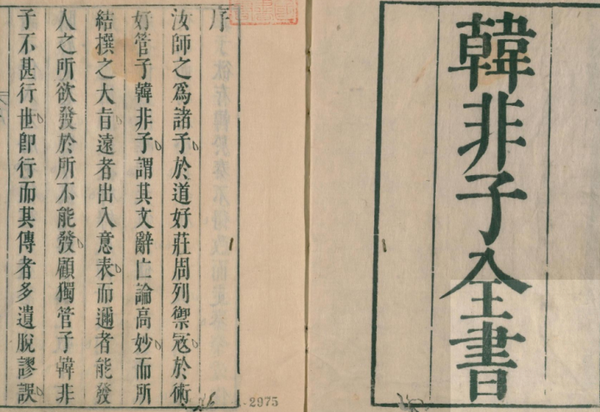 韓非子全書
序
汝師之爲諸子於道好莊周列禦寇於術
好管子韓非子謂其文辭亡論高妙而所
結撰之大旨遠者出入意表而邇者能發
人之所欲發於所不能發顧獨管子韓非
子不甚行世卽行而其傳者多遺脫謬誤
2975